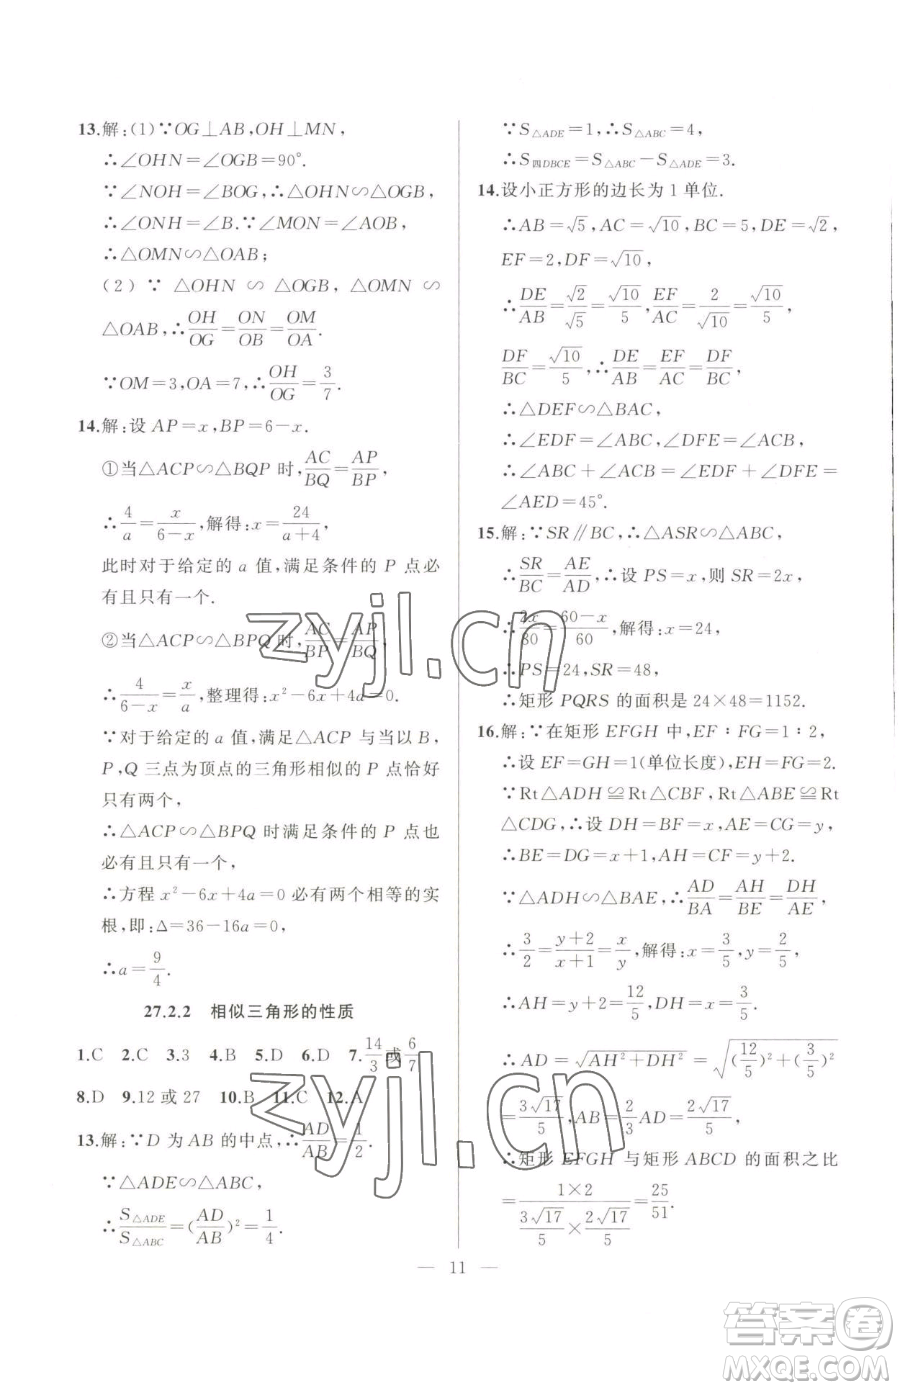 13.解:(1)∵OG⊥AB,OH⊥MN,
∴∠OHN=∠OGB=90°.
∵∠NOH=∠BOG,∴△OHN∽△OGB,
∴∠ONH=∠B.∵∠MON=∠AOB,
∴△OMN∽△OAB;
(2)∵△OHN∽△OGB,△OMN∽
△OAB,∴OH/OG=ON/OB=OM/OA.
∵OM=3,OA=7,∴OH/OG=3/7.
14.解:设AP=x,BP=6-x.
①当△ACP∽△BQP时,AC/BQ=AP/BP,
∴4/a=x/(6-x),解得:x=24/(a+4)
此时对于给定的a值,满足条件的P点必
有且只有一个.
②当△ACP∽△BPQ时,AC/BP=AP/BQ,
∴4/(6-x)=x/a,整理得:x²-6x+4a=0.
∵对于给定的a值,△ACP与当以B,
P,Q三点为顶点的三角形相似的P点恰好
只有两个,
∴△ACP∽△BPQ时满足条件的P点也
必有且只有一个,
∴方程x²-6x+4a=0必有两个相等的实
根,即:Δ=36-16a=0,
∴a=9/4.
27.2.2 相似三角形的性质
1.C 2.C 3.3 4.B 5.D 6.D 7.14/3或6/7
8.D 9.12或27 10.B 11.C 12.A
13.解:∵D为AB的中点,∴AD/AB=1/2.
∵△ADE∽△ABC,
∴S△ADE/S△ABC=(AD/AB)²=1/4.
∵S△ADE=1,∴S△ABC=4,
∴S四DBCE=S△ABC-S△ADE=3.
14.设小正方形的边长为1单位.
∴AB=√5,AC=√10,BC=5,DE=√2,
EF=2,DF=√10,
∴DE/AB=√2/√5=√10/5,EF/AC=2/√10=√10/5,
DF/BC=√10/5,∴DE/AB=EF/AC=DF/BC,
∴△DEF∽△BAC,
∴∠EDF=∠ABC,∠DFE=∠ACB,
∴∠ABC+∠ACB=∠EDF+∠DFE=
∠AED=45°.
15.解:∵SR∥BC,∴△ASR∽△ABC,
∴SR/BC=AE/AD,∴设PS=x,则SR=2x,
∴2x/80=(60-x)/60,解得:x=24,
∴PS=24,SR=48,
∴矩形PQRS的面积是24×48=1152.
16.解:∵在矩形EFGH中,EF∶FG=1∶2,
∴设EF=GH=1(单位长度),EH=FG=2.
∵Rt△ADH≌Rt△CBF,Rt△ABE≌Rt
△CDG,∴设DH=BF=x,AE=CG=y,
∴BE=DG=x+1,AH=CF=y+2.
∵△ADH∽△BAE,∴AD/BA=AH/BE=DH/AE,
∴3/2=(y+2)/(x+1)=x/y,解得:x=3/5,y=2/5,
∴AH=y+2=12/5,DH=x=3/5.
∴AD=√(AH²+DH²)=√((12/5)²+(3/5)²)
=3√17/5,AB=2/3AD=2√17/5,
∴矩形EFGH与矩形ABCD的面积之比
=(1×2)/(3√17/5×2√17/5)=25/51.
— 11 —
zyjl.cn
zyjl.cn
答案圈
MXQE.COM